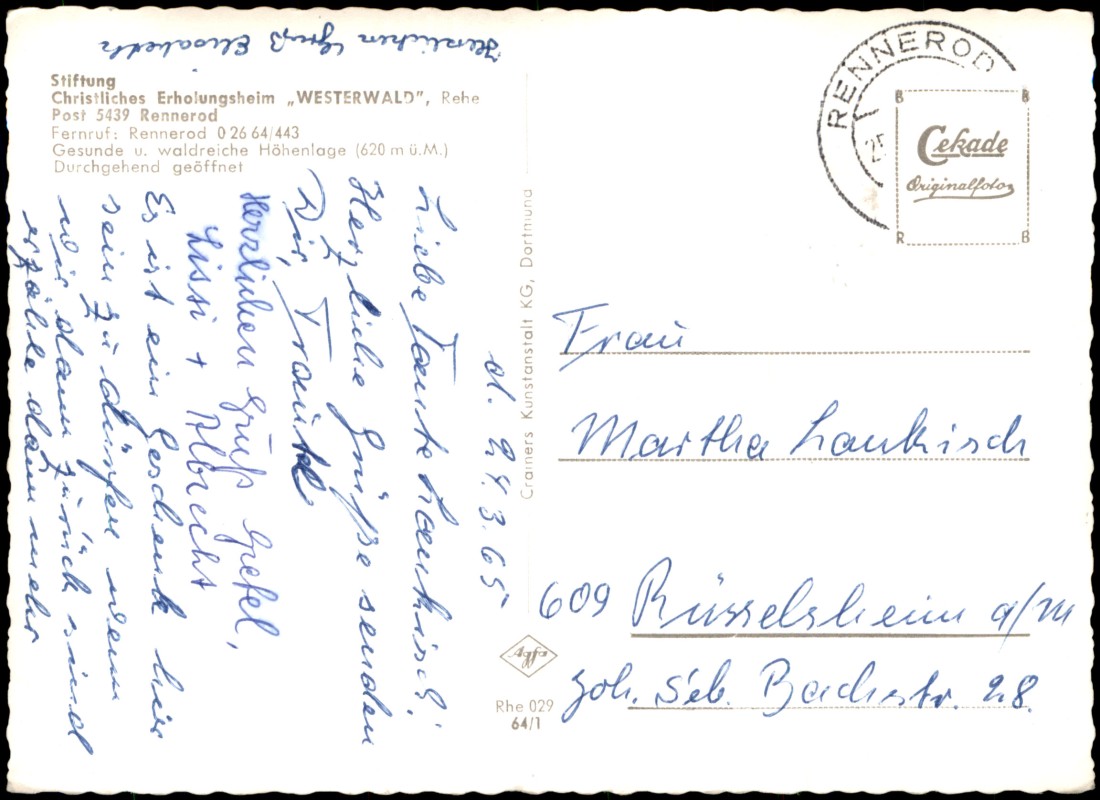 Herzlichen Gruß Elisabeth
Stiftung
Christliches Erholungsheim „WESTERWALD", Rehe
Post 5439 Rennerod
Fernruf: Rennerod 0 26 64/443
Gesunde u. waldreiche Höhenlage (620 m ü.M.)
Durchgehend geöffnet
d. 24.3.65
Liebe Tante Laukisch!
Herzliche Grüße senden
Dir, Traute
Herzlichen Gruß
Lissi + Albrecht
Es ist ein Geschenk hier
sein zu dürfen wenn
wir dann zurück sind
erzähle dann mehr
Crainers Kunstanstalt KG, Dortmund
Agfa
Rhe 029
64/1
RENNEROD
25
B B
Cekade
Originalfotos
R B
Frau
Martha Laukisch
609 Rüsselsheim a/M
Joh. Seb. Bachstr. 28.